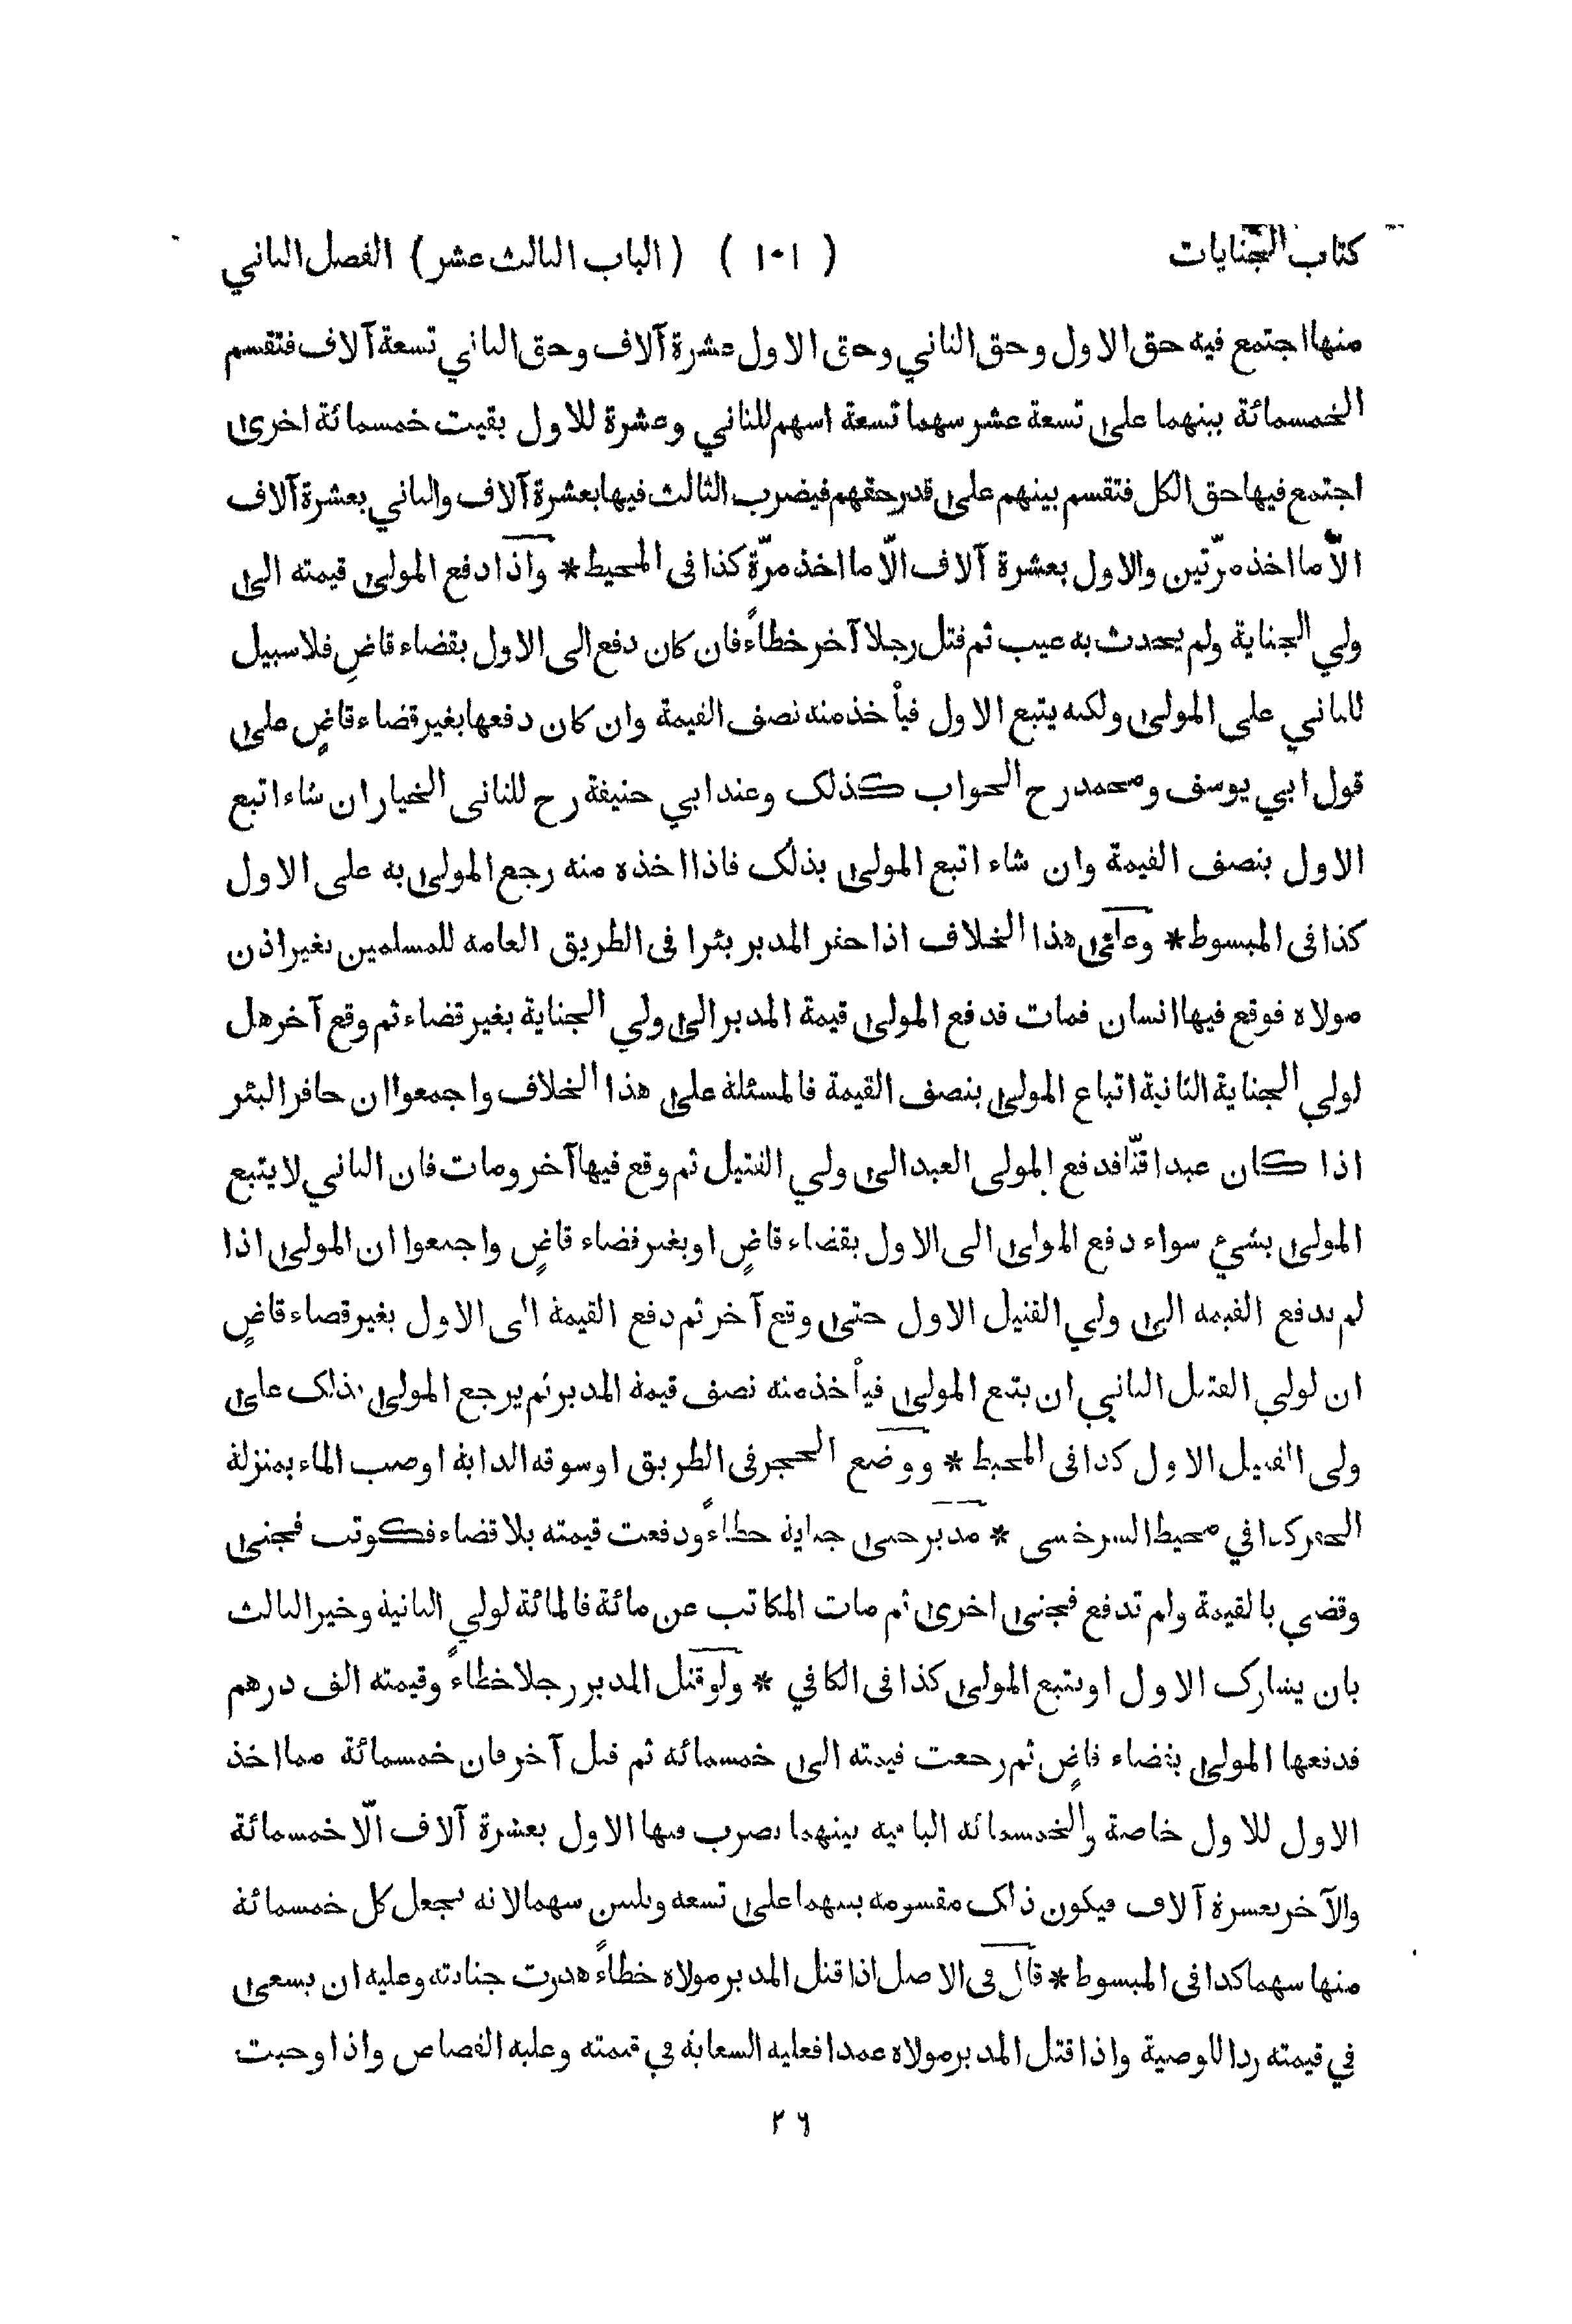 كتاب الجنايات ( ١٠١ ) ( الباب الثالث عشر ) الفصل الثاني
منها اجتمع فيه حق الاول وحق الثاني وحق الاول عشرة آلاف وحق الثاني تسعة آلاف فتقسم
الخمسمائة بينهما على تسعة عشر سهما تسعة اسهم للثاني وعشرة للاول بقيت خمسمائة اخرى
اجتمع فيها حق الكل فتقسم بينهم على قدر حقهم فيضرب الثالث فيها بعشرة آلاف والثاني بعشرة آلاف
الّا ما اخذ مرّتين والاول بعشرة آلاف الّا ما اخذ مرّة كذا فى المحيط * واذا دفع المولى قيمته الى
ولي الجناية ولم يحدث به عيب ثم قتل رجلا آخر خطاءً فان كان دفع الى الاول بقضاء قاضٍ فلا سبيل
للثاني على المولى ولكنه يتبع الاول فيأخذ منه نصف القيمة وان كان دفعها بغير قضاء قاضٍ على
قول ابي يوسف ومحمد رح الجواب كذلك وعند ابي حنيفة رح للثانى الخيار ان شاء اتبع
الاول بنصف القيمة وان شاء اتبع المولى بذلك فاذا اخذه منه رجع المولى به على الاول
كذا فى المبسوط * وعلى هذا الخلاف اذا حفر المدبر بئرا فى الطريق العامه للمسلمين بغير اذن
مولاه فوقع فيها انسان فمات فدفع المولى قيمة المدبر الى ولي الجناية بغير قضاء ثم وقع آخر هل
لولي الجناية الثانية اتباع المولى بنصف القيمة فالمسئلة على هذا الخلاف واجمعوا ان حافر البئر
اذا كان عبدا قنّا فدفع المولى العبد الى ولي القتيل ثم وقع فيها آخر ومات فان الثاني لا يتبع
المولى بشيء سواء دفع المولى الى الاول بقضاء قاضٍ او بغير قضاء قاضٍ واجمعوا ان المولى اذا
لم يدفع القيمه الى ولي القتيل الاول حتى وقع آخر ثم دفع القيمة الى الاول بغير قضاء قاضٍ
ان لولي القتيل الثاني ان يتبع المولى فيأخذ منه نصف قيمة المدبر ثم يرجع المولى بذلك على
ولى القتيل الاول كذا فى المحيط * ووضع الحجر فى الطريق او سوقه الدابة او صب الماء بمنزلة
الحفر كذا في محيط السرخسى * مدبر جنى جناية خطاءً ودفعت قيمته بلا قضاء فكوتب فجنى
وقضي بالقيمة ولم تدفع فجنى اخرى ثم مات المكاتب عن مائة فالمائة لولي الثانية وخير الثالث
بان يشارك الاول او يتبع المولى كذا فى الكافي * ولو قتل المدبر رجلا خطاءً وقيمته الف درهم
فدفعها المولى بقضاء قاضٍ ثم رجعت قيمته الى خمسمائه ثم قتل آخر فان خمسمائة مما اخذ
الاول للاول خاصة والخمسمائه الباقيه بينهما يضرب فيها الاول بعشرة آلاف الّا خمسمائة
والآخر بعشرة آلاف فيكون ذلك مقسومه بينهما على تسعه وثلثين سهما لانه يجعل كل خمسمائة
منها سهما كذا فى المبسوط * قال فى الاصل اذا قتل المدبر مولاه خطاءً هدرت جنايته وعليه ان يسعى
في قيمته ردا للوصية واذا قتل المدبر مولاه عمدا فعليه السعاية في قيمته وعليه القصاص واذا وجبت
٢٦